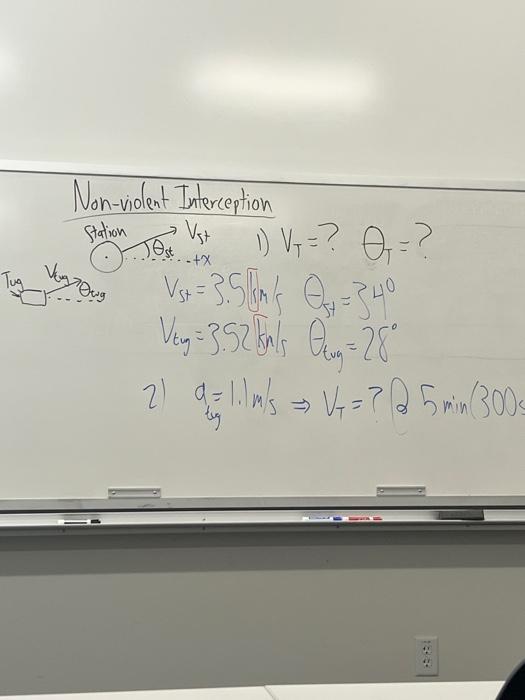 Non-violent Interception
Station V_st 1) V_T = ? θ_T = ?
θ_st +x
Tug V_tug θ_tug
V_st = 3.5 km/s θ_st = 34°
V_tug = 3.52 km/s θ_tug = 28°
2) a_tug = 1.1 m/s ⇒ V_T = ? @ 5 min (300s